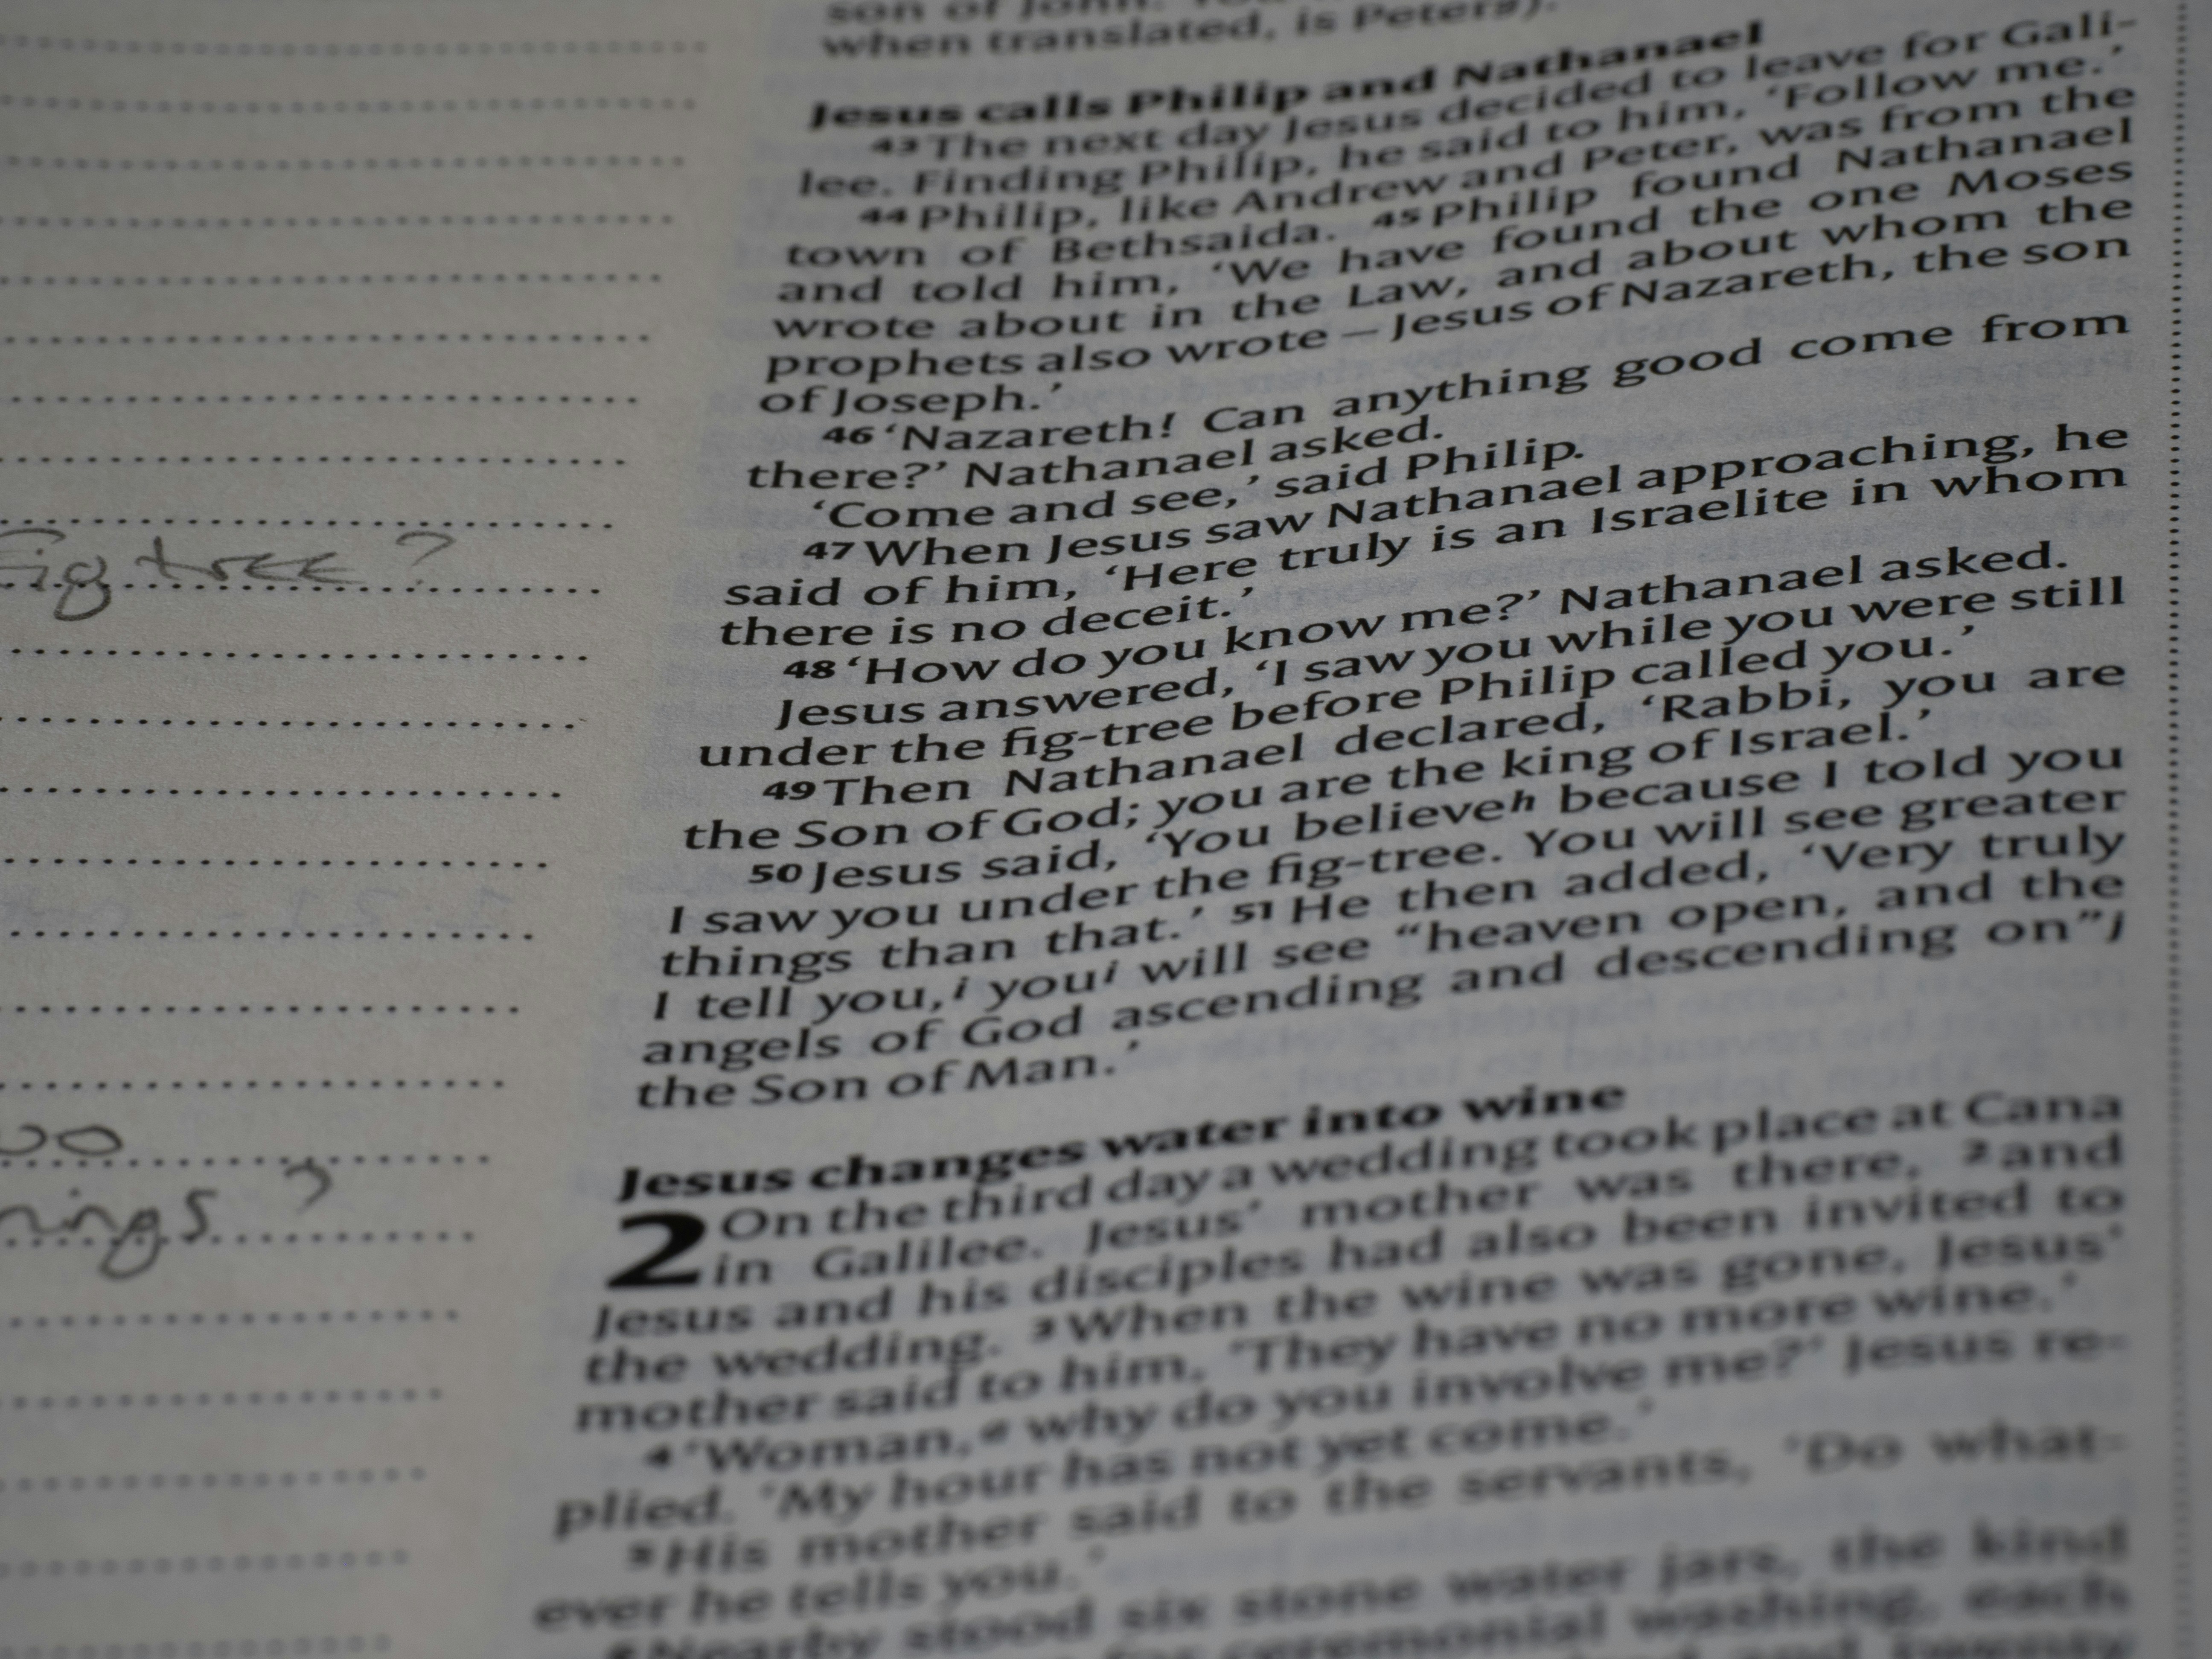 son of John. You
when translated, is Peter g).
Jesus calls Philip and Nathanael
43 The next day Jesus decided to leave for Gali-
lee. Finding Philip, he said to him, ‘Follow me.’
44 Philip, like Andrew and Peter, was from the
town of Bethsaida. 45 Philip found Nathanael
and told him, ‘We have found the one Moses
wrote about in the Law, and about whom the
prophets also wrote – Jesus of Nazareth, the son
of Joseph.’
46 ‘Nazareth! Can anything good come from
there?’ Nathanael asked.
‘Come and see,’ said Philip.
47 When Jesus saw Nathanael approaching, he
said of him, ‘Here truly is an Israelite in whom
there is no deceit.’
48 ‘How do you know me?’ Nathanael asked.
Jesus answered, ‘I saw you while you were still
under the fig-tree before Philip called you.’
49 Then Nathanael declared, ‘Rabbi, you are
the Son of God; you are the king of Israel.’
50 Jesus said, ‘You believe h because I told you
I saw you under the fig-tree. You will see greater
things than that.’ 51 He then added, ‘Very truly
I tell you, i you i will see “heaven open, and the
angels of God ascending and descending on” j
the Son of Man.’
Jesus changes water into wine
2 On the third day a wedding took place at Cana
in Galilee. Jesus’ mother was there, 2 and
Jesus and his disciples had also been invited to
the wedding. 3 When the wine was gone, Jesus’
mother said to him, ‘They have no more wine.’
4 ‘Woman, a why do you involve me?’ Jesus re-
plied. ‘My hour has not yet come.’
5 His mother said to the servants, ‘Do what-
ever he tells you.’
6 Nearby stood six stone water jars, the kind
for ceremonial washing, each
twenty
fig tree?
oo
nings?